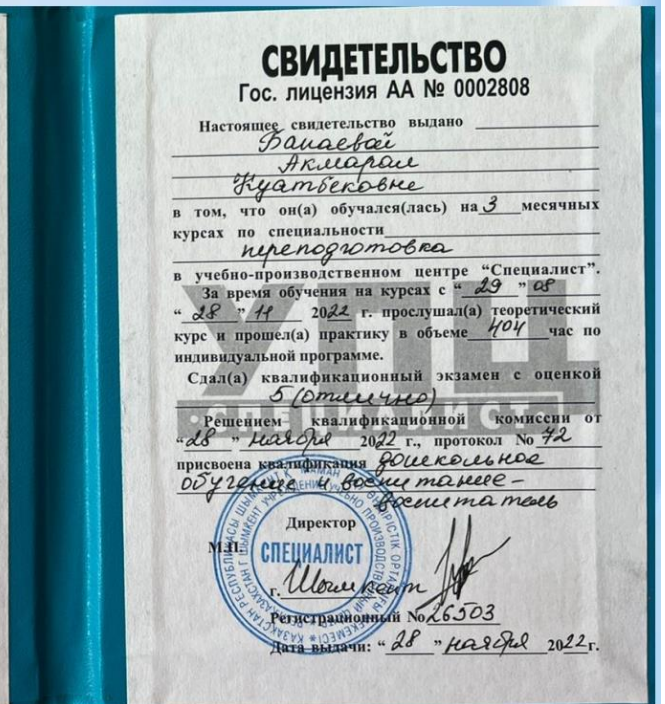 СВИДЕТЕЛЬСТВО
Гос. лицензия АА № 0002808
Настоящее свидетельство выдано
Бапаевой
Акмарал
Куатбековне
в том, что он(а) обучался(лась) на 3 месячных
курсах по специальности
переподготовка
в учебно-производственном центре “Специалист”.
За время обучения на курсах с “ 29 ” 08
“ 28 ” 11 2022 г. прослушал(а) теоретический
курс и прошел(а) практику в объеме 404 час по
индивидуальной программе.
Сдал(а) квалификационный экзамен с оценкой
5 (отлично)
Решением квалификационной комиссии от
“28 ” ноября 2022 г., протокол № 72
присвоена квалификация дошкольное
обучение и воспитание–
воспитатель
Директор
М.П.
СПЕЦИАЛИСТ
г. Шымкент
Регистрационный №26503
Дата выдачи: “ 28 ” ноября 2022г.
УПЦ
СПЕЦИАЛИСТ